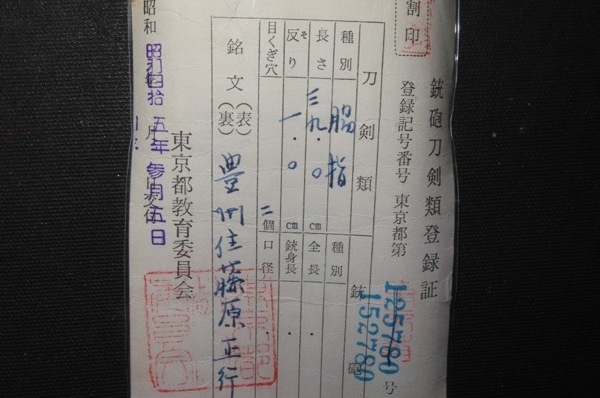 銃砲刀剣類登録証
割印
登録記号番号 東京都第 125780 号
152780
刀剣類
銃砲
種別 脇指
種別
長さ 三九・〇 cm
全長 ・
反り そ 一・〇 cm
銃身長 ・
目くぎ穴 二個
口径 ・
銘文 (表) 豊州住藤原正行
(裏)
昭和 月 日交付
昭和四拾五年参月五日
東京都教育委員会